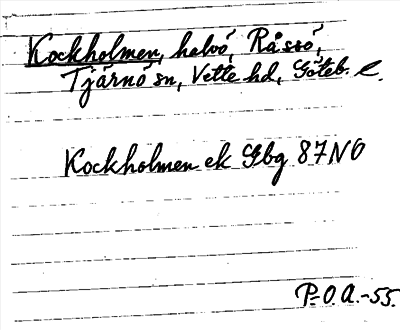 Kockholmen, halvö, Råssö,
Tjärnö sn, Vette hd, Göteb. l.
Kockholmen ek Gbg 87 NO
P.O.A.-55.